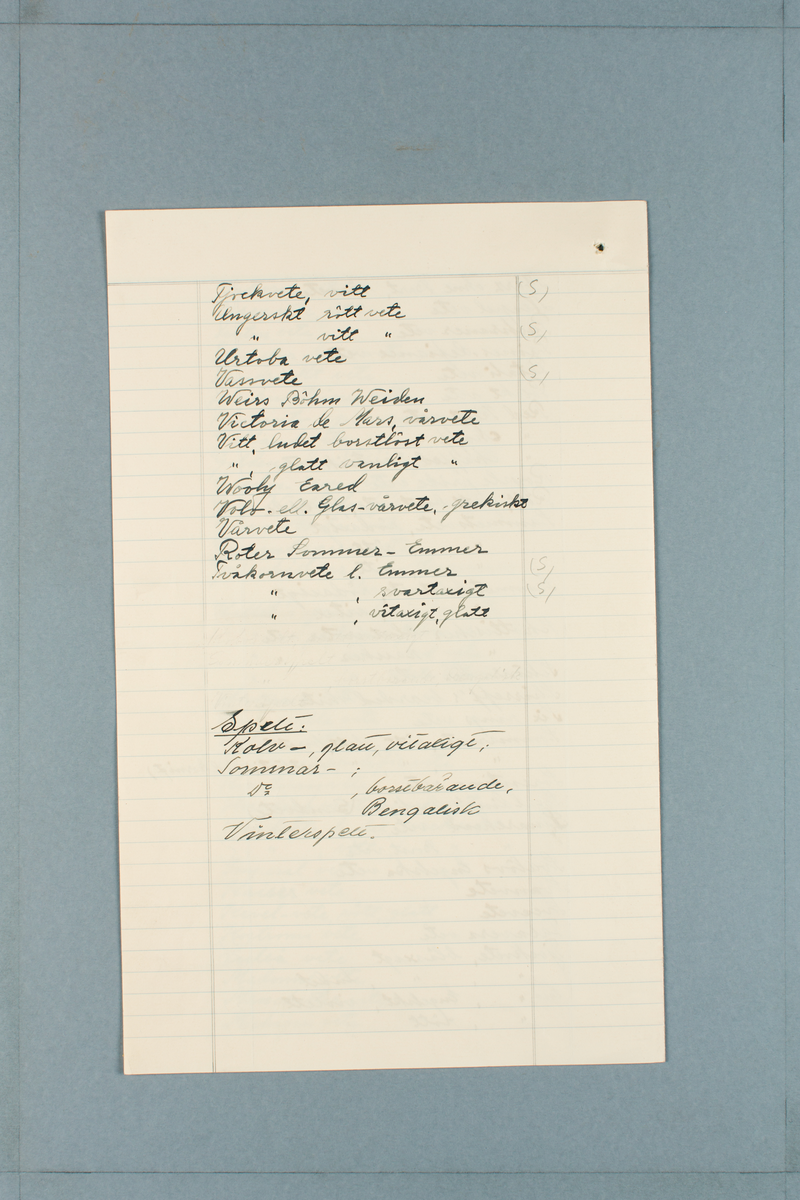 Tjrekvete, vitt (S)
Ungerskt rött vete
" vitt " (S)
Urtoba vete
Vassvete (S)
Weirs Böhm Weiden
Victoria de Mars, vårvete
Vitt, ludet borstlöst vete
" , glatt vanligt "
Wooly Eared
Volo- ell. Glas-vårvete, grekiskt
Vårvete
Roter Sommer-Emmer
Tvåkornvete l. Emmer (S)
" , svartaxigt (S)
" , vitaxigt, glatt
Spelt:
Kolv-, glatt, vitaxigt;
Sommar- ;
Do , borstbärande,
Bengalisk
Vinterspelt.